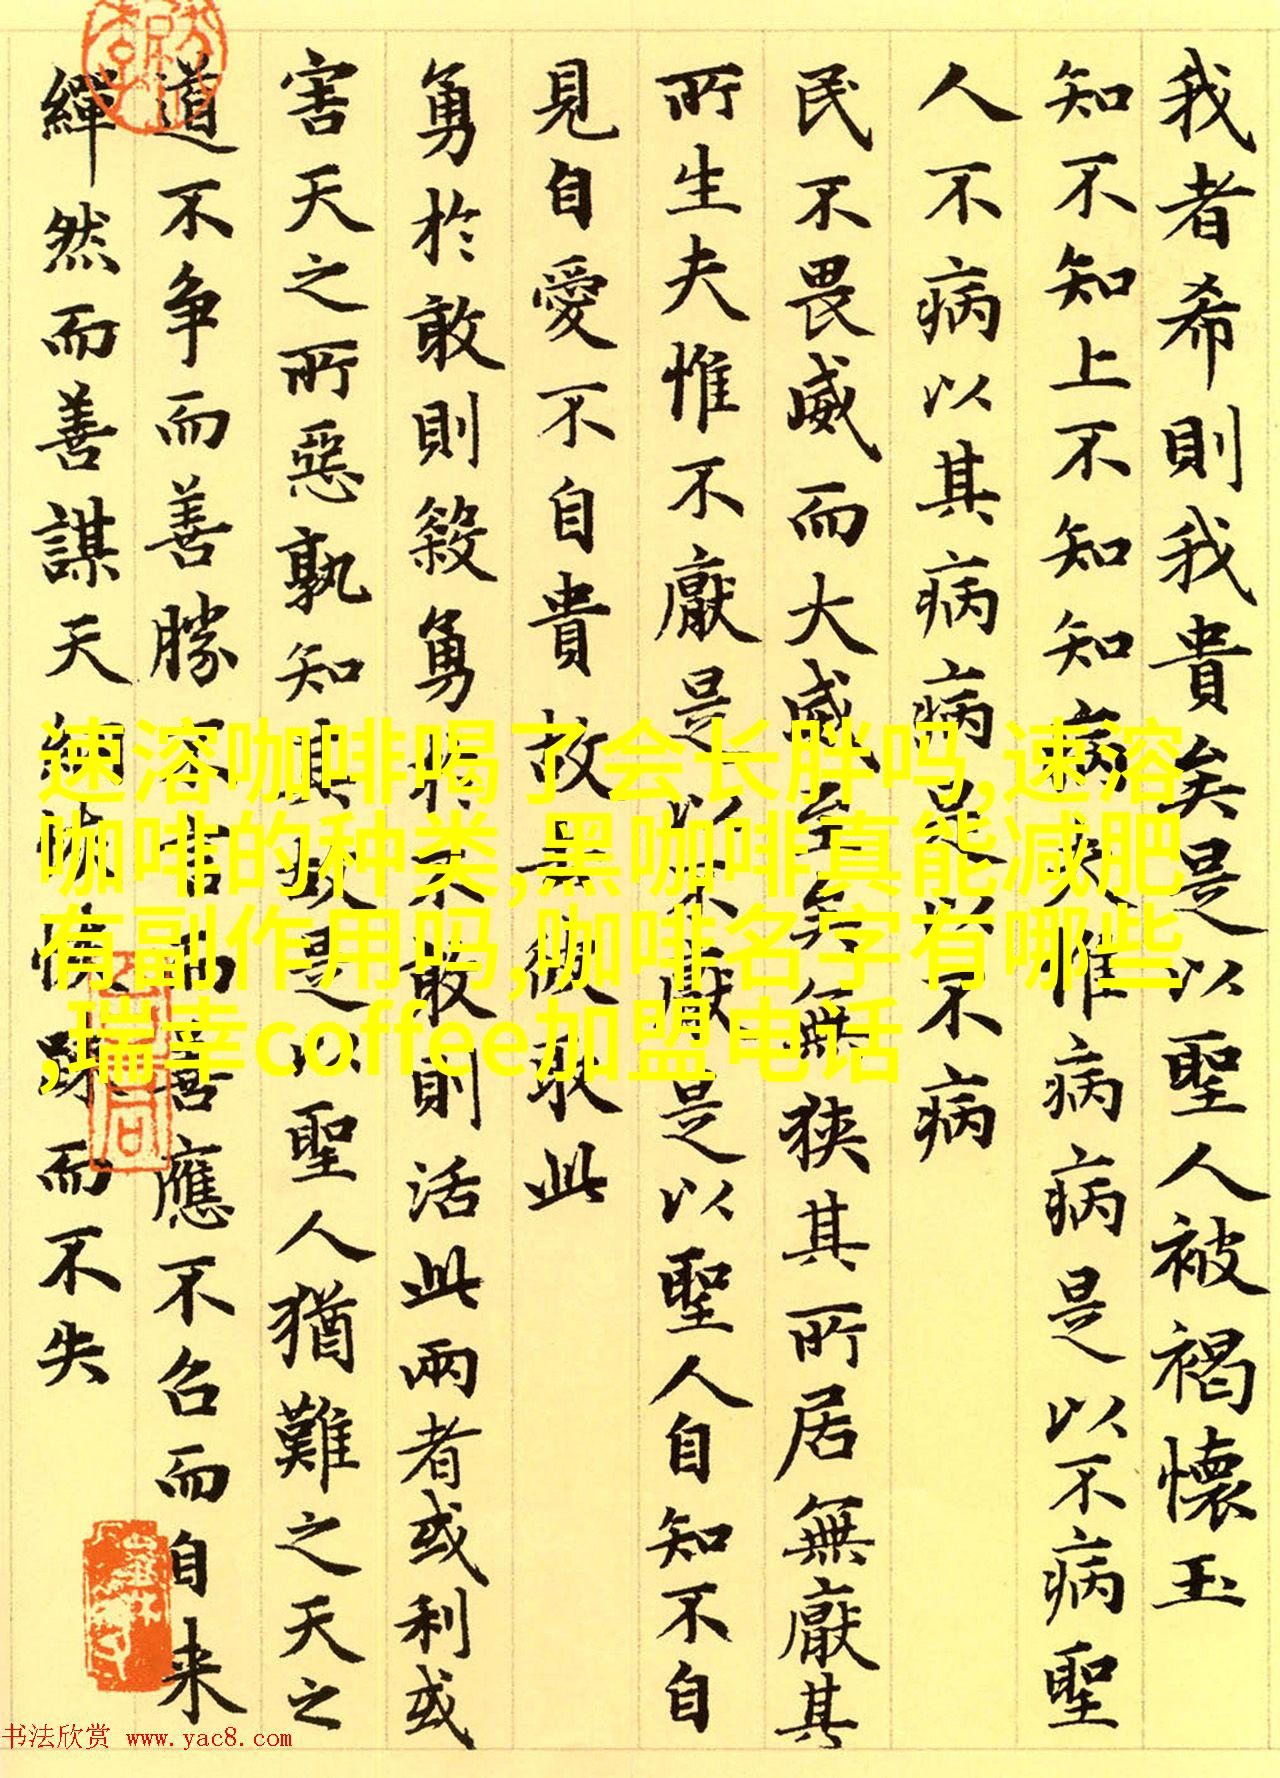 我者希則我貴矣是以聖人被褐懷玉
知不知上不知知病夫惟病病是以不病聖
人不病以其病病是以不病
民不畏威而大威至矣無狹其所居無厭其
所生夫惟不厭是以不厭是以聖人自知不自
見自愛不自貴故去彼取此
勇於敢則殺勇於不敢則活此兩者或利或
害天之所惡孰知其故是以聖人猶難之天之
道不争而善勝不言而善應不召而自来
繟然而善謀天網恢恢踈而不失
速溶咖啡喝了会长胖吗,速溶
咖啡的种类,黑咖啡真能减肥
有副作用吗,咖啡名字有哪些
,瑞幸coffee加盟电话
书法欣赏 www.yac8.com